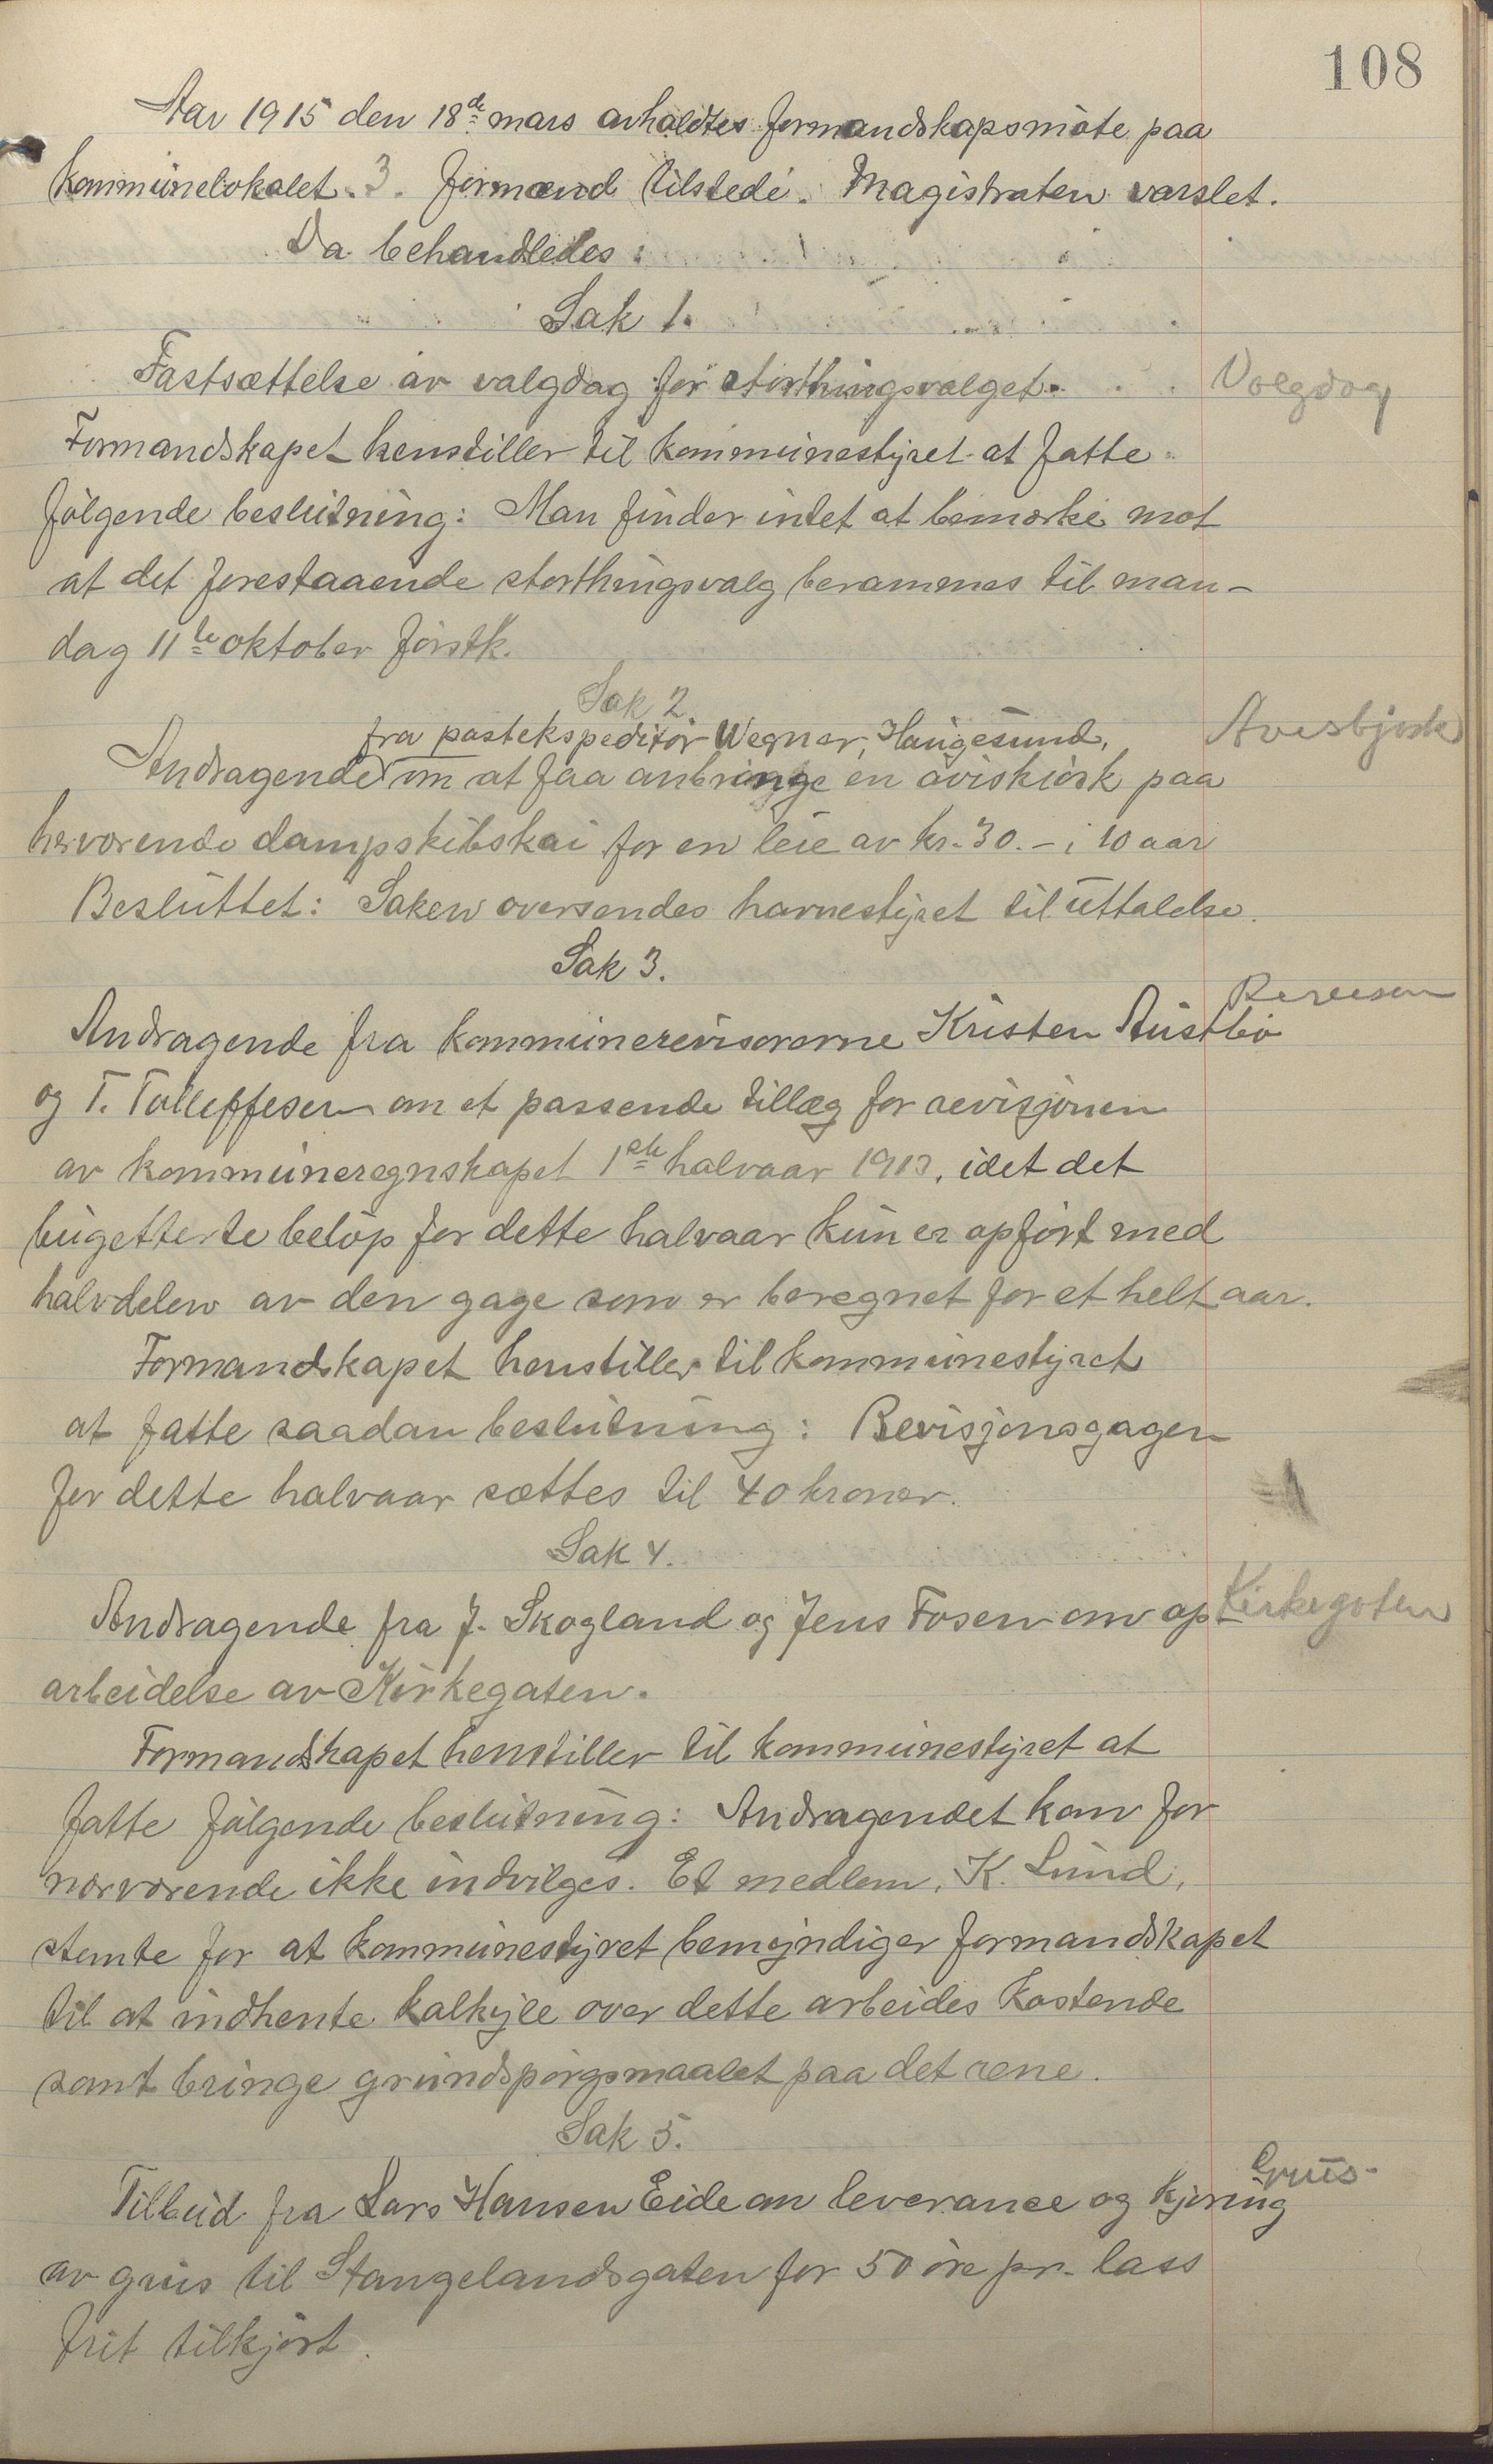 108
Aar 1915 den 18de mars avholdtes formandskapsmöte paa
kommunelokalet. 3. formænd tilstede. Magistraten varslet.
Da behandledes:
Sak 1.
Fastsættelse av valgdag for storthingsvalget.
Valgdag
Formandskapet henstiller til kommunestyret at fatte
fölgende beslutning: Man finder intet at bemærke mot
at det forestaaende storthingsvalg berammes til man-
dag 11te oktober förstk.
Sak 2.
fra postekspeditör Wegner, Haugesund,
Aviskjosk
Andragende om at faa anbringe en aviskiosk paa
herværende dampskibskai for en leie av kr. 30.- i 10 aar
Besluttet: Saken oversendes havnestyret til uttalelse.
Sak 3.
Andragende fra kommunerevisorerne Kristen Austbö
og T. Tolleffesen om et passende tillæg for revisjonen
av kommuneregnskapet 1ste halvaar 1913, idet det
bugetterte belöp for dette halvaar kun er opfört med
halvdelen av den gage som er beregnet for et helt aar.
Formandskapet henstiller til kommunestyret
at fatte saadan beslutning: Revisjonsgagen
for dette halvaar sættes til 40 kroner.
Sak 4.
Andragende fra J. Skogland og Jens Fosen om op-
Kirkegaten
arbeidelse av Kirkegaten.
Formandskapet henstiller til kommunestyret at
fatte fölgende beslutning: Andragendet kan for
nærværende ikke indvilges. Et medlem, K. Lund,
stemte for at kommunestyret bemyndiger formandskapet
til at indhente kalkyle over dette arbeides kostende
samt bringe grundspörgsmaalet paa det rene.
Sak 5.
Grus-
Tilbud fra Lars Hansen Eide om leverance og kjöring
av grus til Stangelandsgaten for 50 öre pr. lass
frit tilkjört.